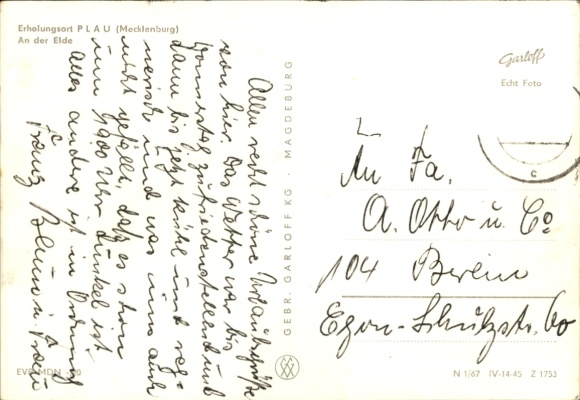 Erholungsort PLAU (Mecklenburg)
An der Elde
Allen recht schöne Urlaubsgrüße
von hier. Das Wetter war bis
Donnerstag zufriedenstellend und
dann bis jetzt kühl und reg-
nerisch und was uns auch
nicht gefällt, daß es schon
um 1900 Uhr dunkel ist
Alles andere ist in Ordnung
Franz Blum u. Frau
EVP MDN -20
GEBR. GARLOFF KG · MAGDEBURG
Garloff
Echt Foto
c
An Fa.
A. Otto u. Co
104 Berlin
Egon-Schulzstr. 60
N 1/67 IV-14-45 Z 1753